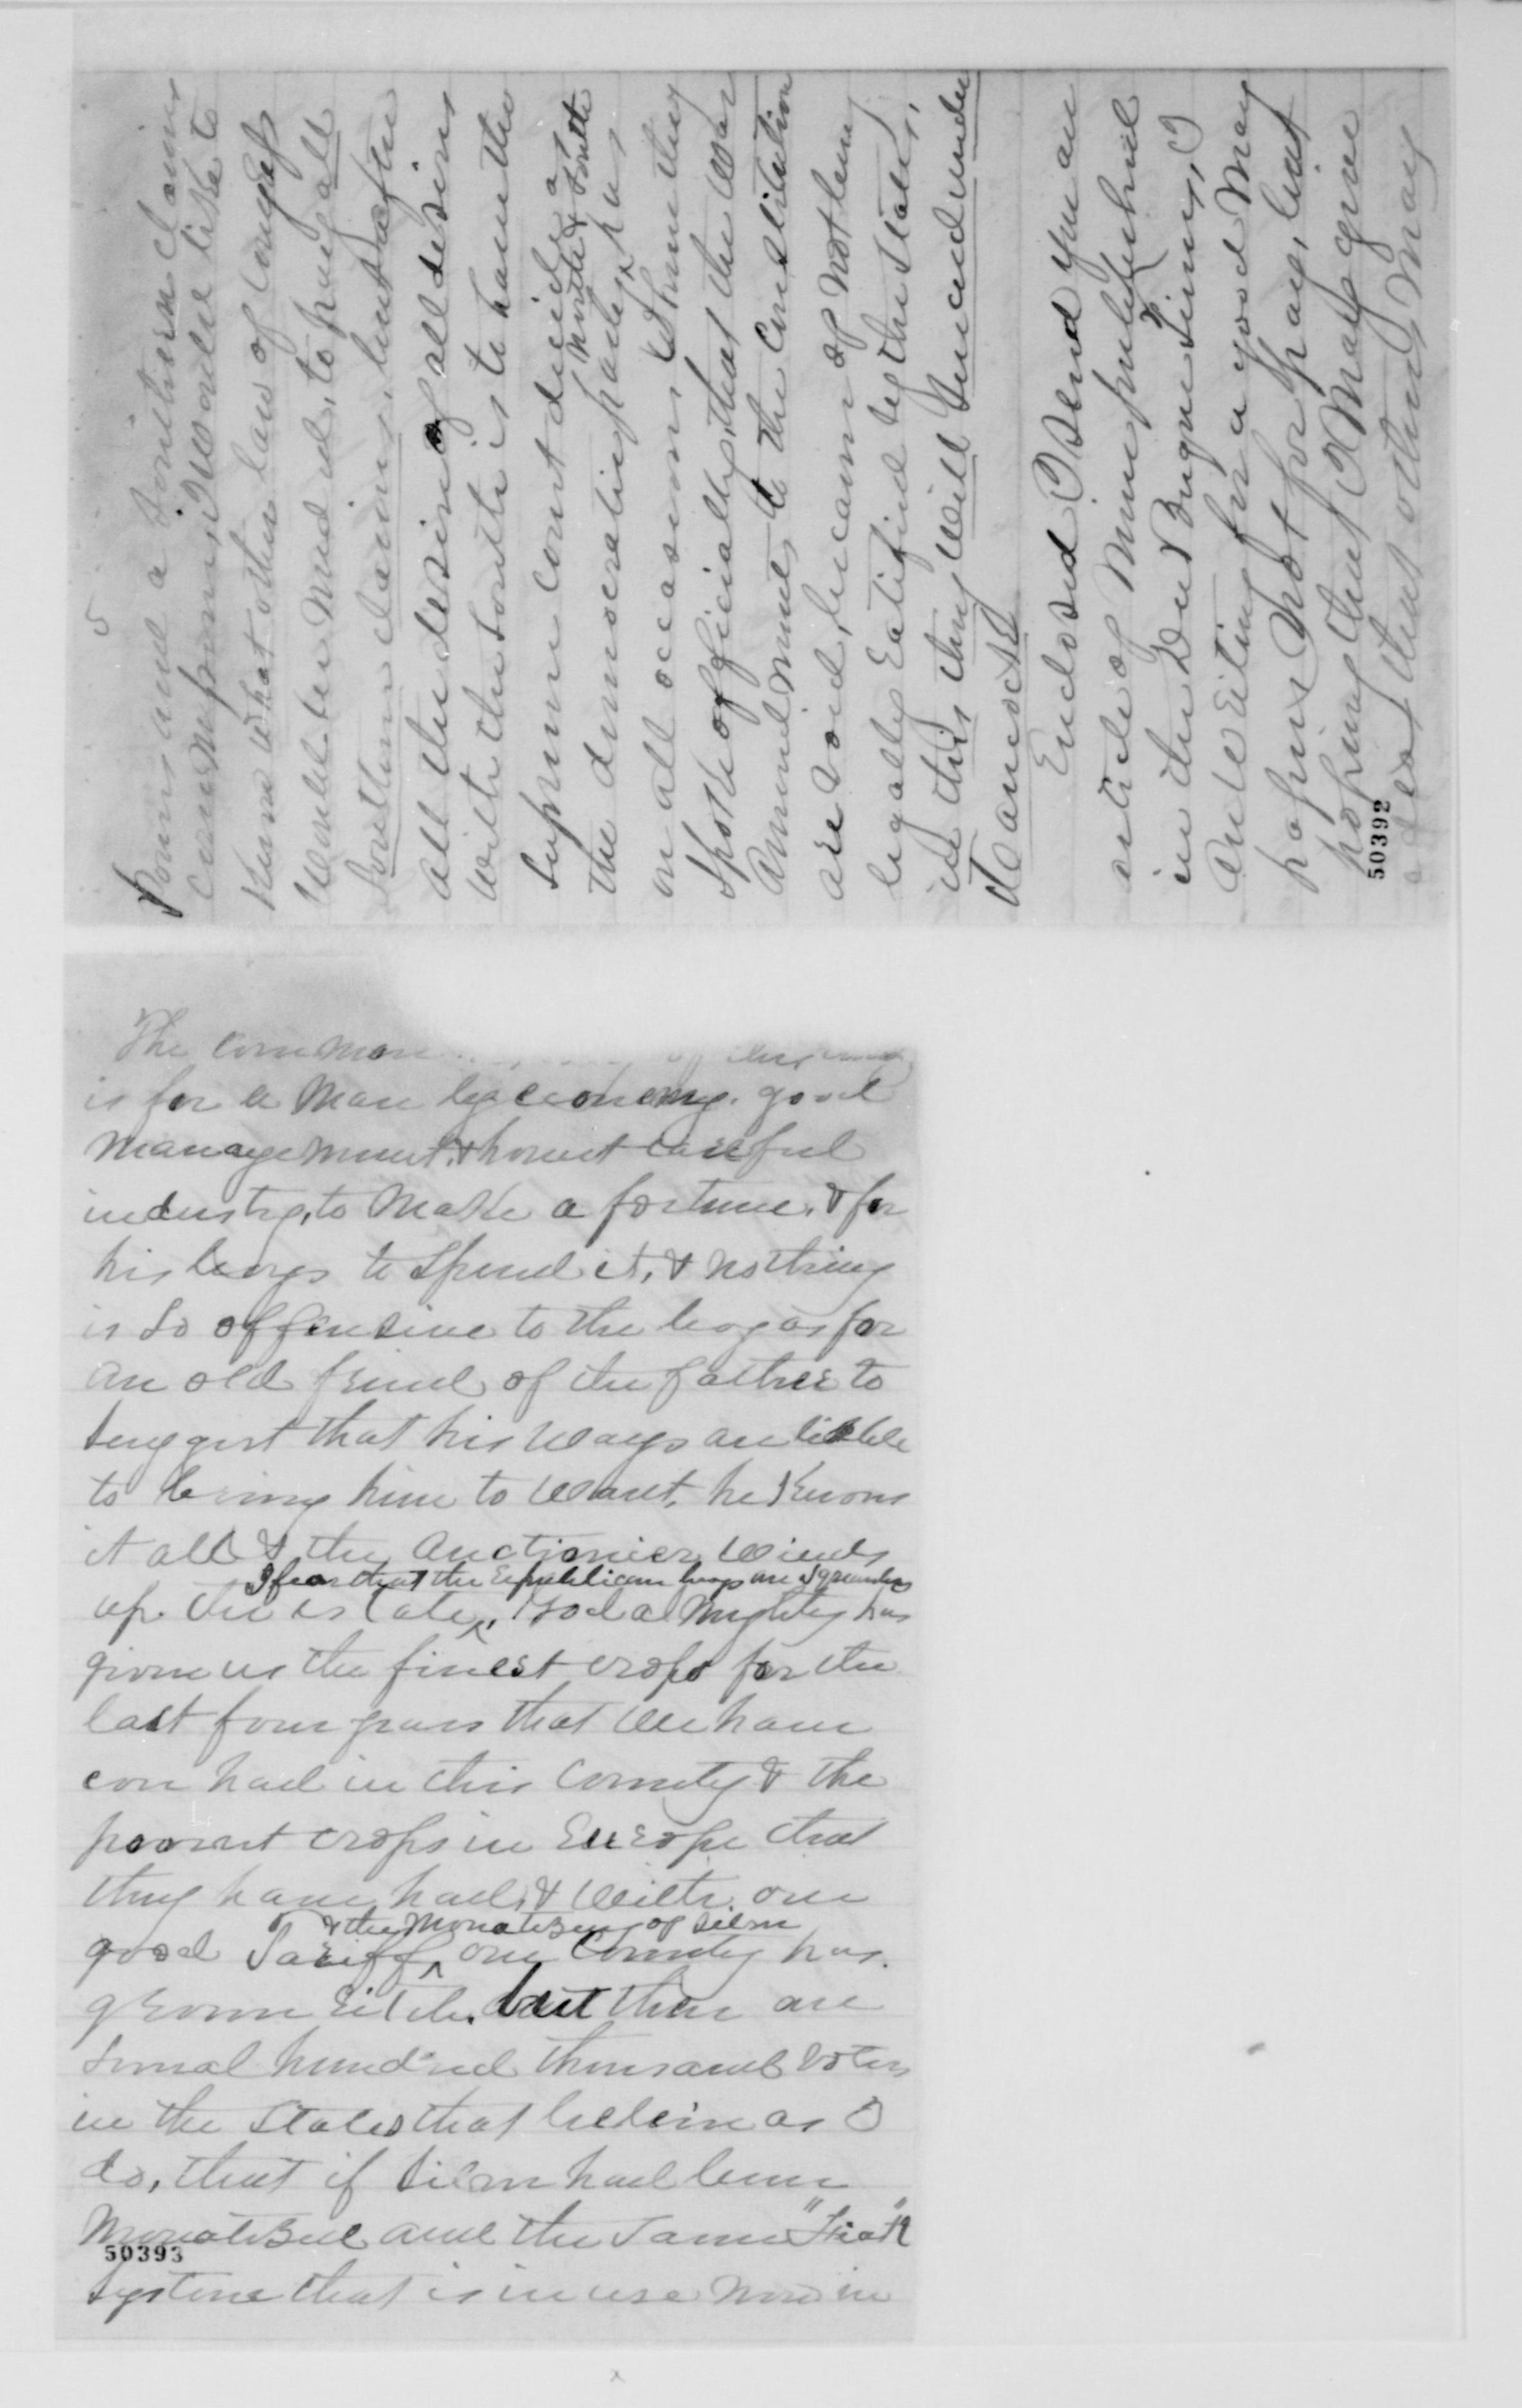 5
Powers and a Southern Claims
Commissioner, I would like to
Know what other law of Congress
would be Needed, to pay all
Southern claims, but after
all the desire of all desires
with the South is to have the
Supreme Court decide as
the democratic party North & South has
on all occasions whenever they
Spoke officially, that the war
Ammendments to the Constitution
are void, because of not being
legally Ratified by the States,
in this they will Succeed under
Hancock
Enclosed I Send you an
article of Mine published
in the Dubuque Times, I
am writing for a good Many
papers Not for pay, but
hoping that I May give
50392
ideas that others May
The common
is for a Man by economy. good
Management, & honest careful
industry, to Make a fortune. & for
his boys to Spend it, & nothing
is So offensive to the boy as for
an old friend of the father to
Suggest that his ways are liable
to bring him to want. he Knows
it all & the Auctionier winds
I fear that the Republican boys are Squandering
up the estate, God almighty has
given us the finest crops for the
last four years that we have
ever had in this Country & the
poorest crops in Europe that
they have had, & with our
& the Monatizing of Silver
good Tariff, our Country has
grown Rich. but there are
Several hundred thousand voters
in the States that believe as I
do, that if Silver had been
Monatized and the Same
50393
System that is in use Now in